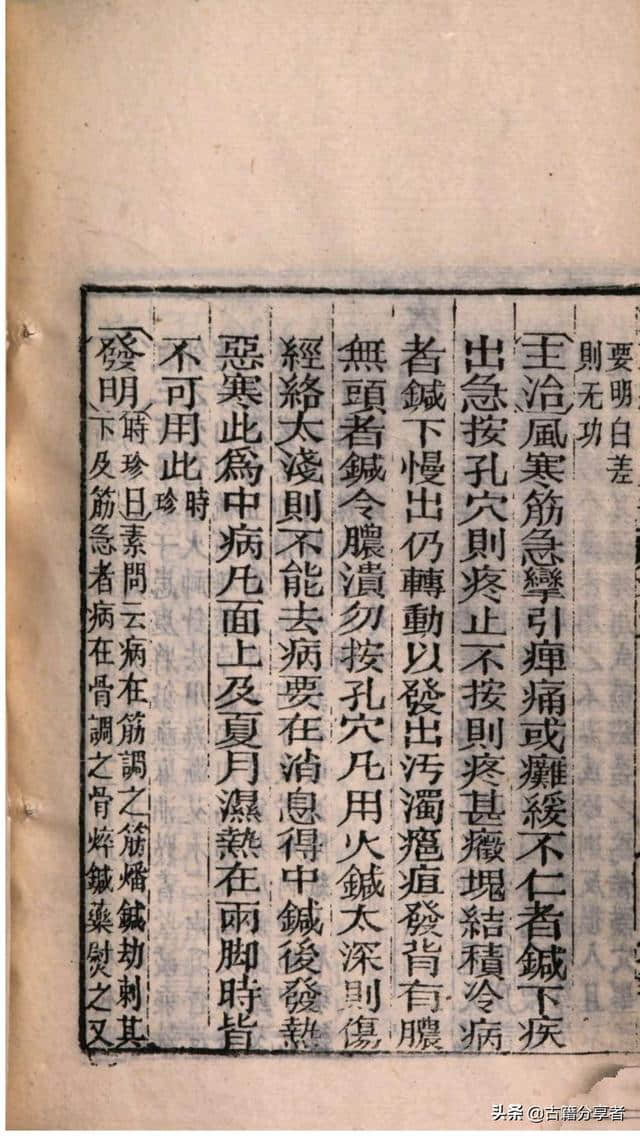 要明白差
則无功
主治風寒筋急攣引痹痛或癱緩不仁者鍼下疾
出急按孔穴則疼止不按則疼甚癥塊結積冷病
者鍼下慢出仍轉動以發出汚濁癰疽發背有膿
無頭者鍼令膿潰勿按孔穴凡用火鍼太深則傷
經絡太淺則不能去病要在消息得中鍼後發熱
惡寒此爲中病凡面上及夏月濕熱在兩脚時皆
不可用此時珍
發明時珍曰素問云病在筋調之筋燔鍼劫刺其
下及筋急者病在骨調之骨焠鍼藥熨之又
头条 @古籍分享者